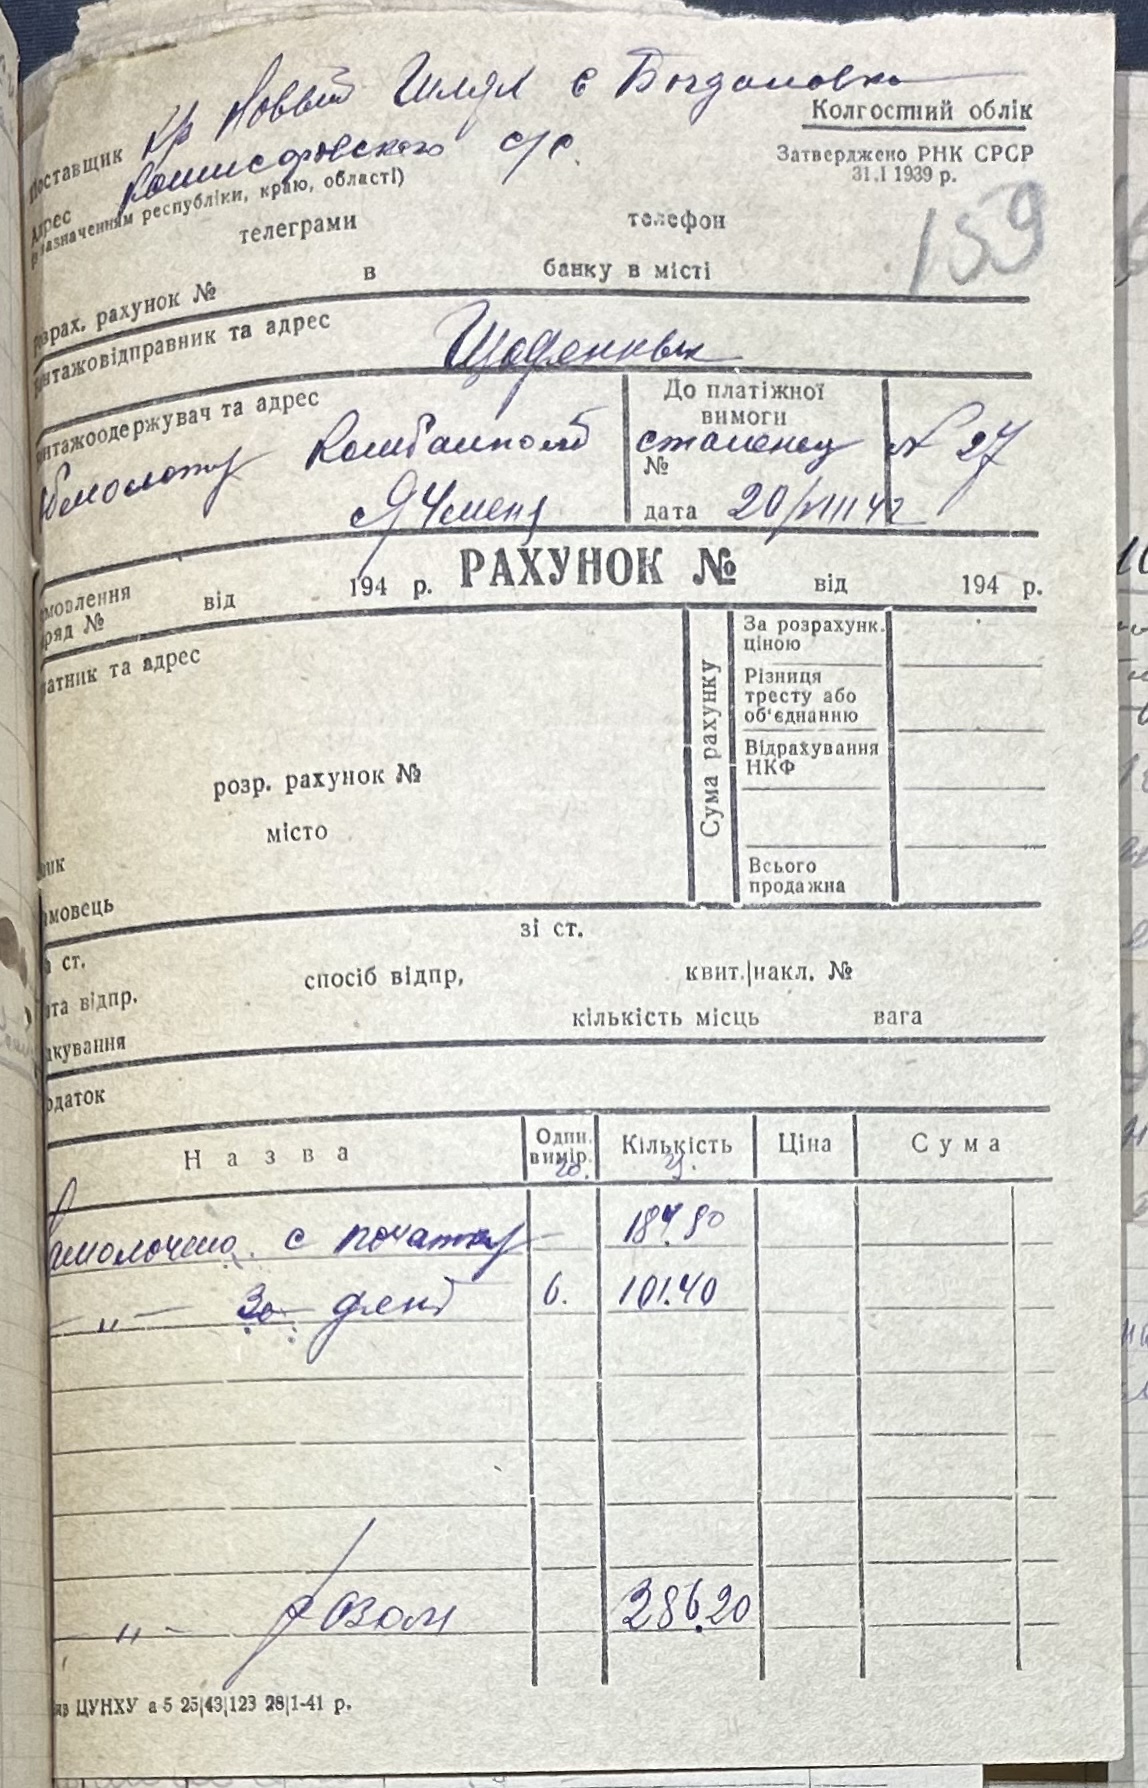 Кр Новый Шлях с Богдановка
Колгоспний облік
Поставщик
Комисаровского с/с.
Затверджено РНК СРСР
31.I 1939 р.
Адрес
зазначенням республіки, краю, області)
159
телеграми телефон
розрах. рахунок № в банку в місті
антажовідправник та адрес
Щоденнык
антажоодержувач та адрес
До платіжної
вимоги
Обмолоту Комбайном сталенец № 27
№
Ячменя
дата 20/VIII 42
РАХУНОК №
мовлення
ряд № від 194 р. від 194 р.
атник та адрес
Сума рахунку
За розрахунк.
ціною
Різниця
тресту або
об'єднанню
Відрахування
НКФ
розр. рахунок №
місто
Всього
продажна
мовець
зі ст.
ст.
спосіб відпр, квит.|накл. №
та відпр.
кількість місць вага
кування
одаток
Назва Один. вимір. Кількість Ціна Сума
Намолочено с початку 184.80
— „ — За день 6. 101.40
„ - Разом 286.20
ЦУНХУ а-5 25|43|123 28|1-41 р.